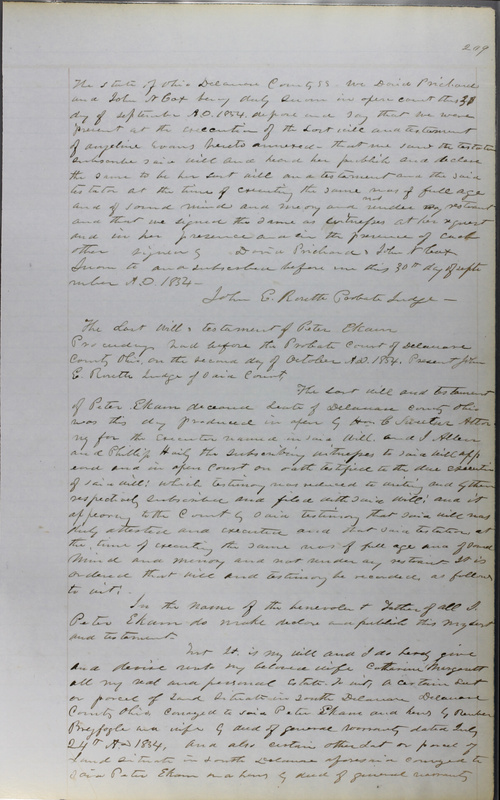 209
The state of Ohio Delaware County SS. We David Prichard
and John N Cox being duly sworn in open court this 30
day of September A.D. 1854. depose and say that we were
present at the execution of the last will and testament
of Angeline Evans hereto annexed that we saw the testator
subscribe said will and heard her publish and declare
the same to be her last will and testament and the said
testator at the time of executing the same was of full age
and of sound mind and memory and not under any restraint
and that we signed the same as witnesses at her request
and in her presence and in the presence of each
other signed David Prichard & John N Cox
Sworn to and subscribed before me this 30th day of Septe
mber A.D. 1854 —
John C. Routh Probate Judge —
The Last will & testament of Peter Ekam
Proceedings had before the Probate Court of Delaware
County Ohio, on the second day of October A.D. 1854. Present John
C. Routh Judge of said Court
The last will and testament
of Peter Ekam deceased late of Delaware County Ohio
was this day produced in open by Attor
ney for the Executor named in said will. and J Allen
and Phillip the subscribing witnesses to said will app
eared and in open Court on oath testified to the due execution
of said will: which testimony was reduced to writing and by them
respectively subscribed and filed with said will: and it
appearing to the Court by said testimony that said will was
duly attested and executed and that said testator at
the time of executing the same was of full age and of sound
mind and memory and not under any restraint. It is
ordered that will and testimony be recorded, as follows
to wit:
In the name of the benevolent Father of all I.
Peter Ekam do make declare and publish this my last
and testament
First It is my will and I do hereby give
and devise unto my beloved wife Catherine Margarett
all my real and personal Estate To wit, A certain Lot
or parcel of Land Situate in South Delaware Delaware
County Ohio conveyed to said Peter Ekam and heirs by Reuben
and wife by deed of general warranty dated July
24th A.D 1834, And also certain other Lot or parcel of
Land Situate in South Delaware aforesaid conveyed to
said Peter Ekam and heirs by deed of general warranty